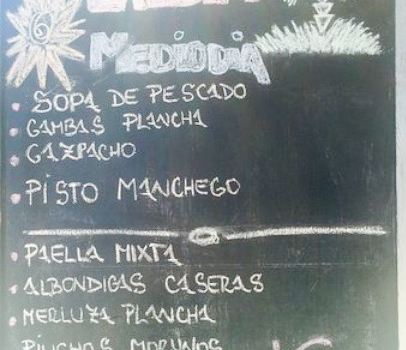 MEDIODIA
SOPA DE PESCADO
GAMBAS PLANCHA
GAZPACHO
PISTO MANCHEGO
PAELLA MIXTA
ALBONDIGAS CASERAS
MERLUZA PLANCHA
PINCHOS MORUNOS